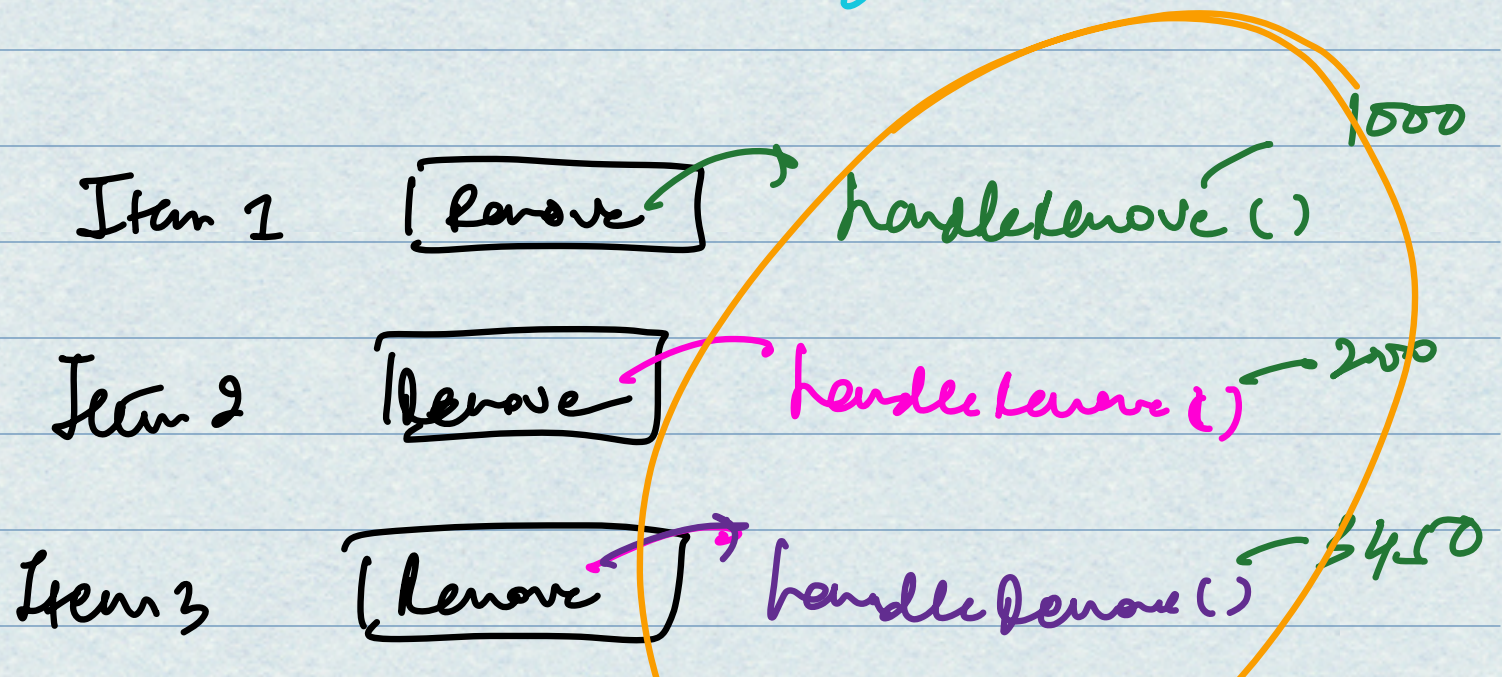 Item 1 Remove handleRemove () 1000
Item 2 Remove handleRemove () 2000
Item 3 Remove handleRemove () 3450